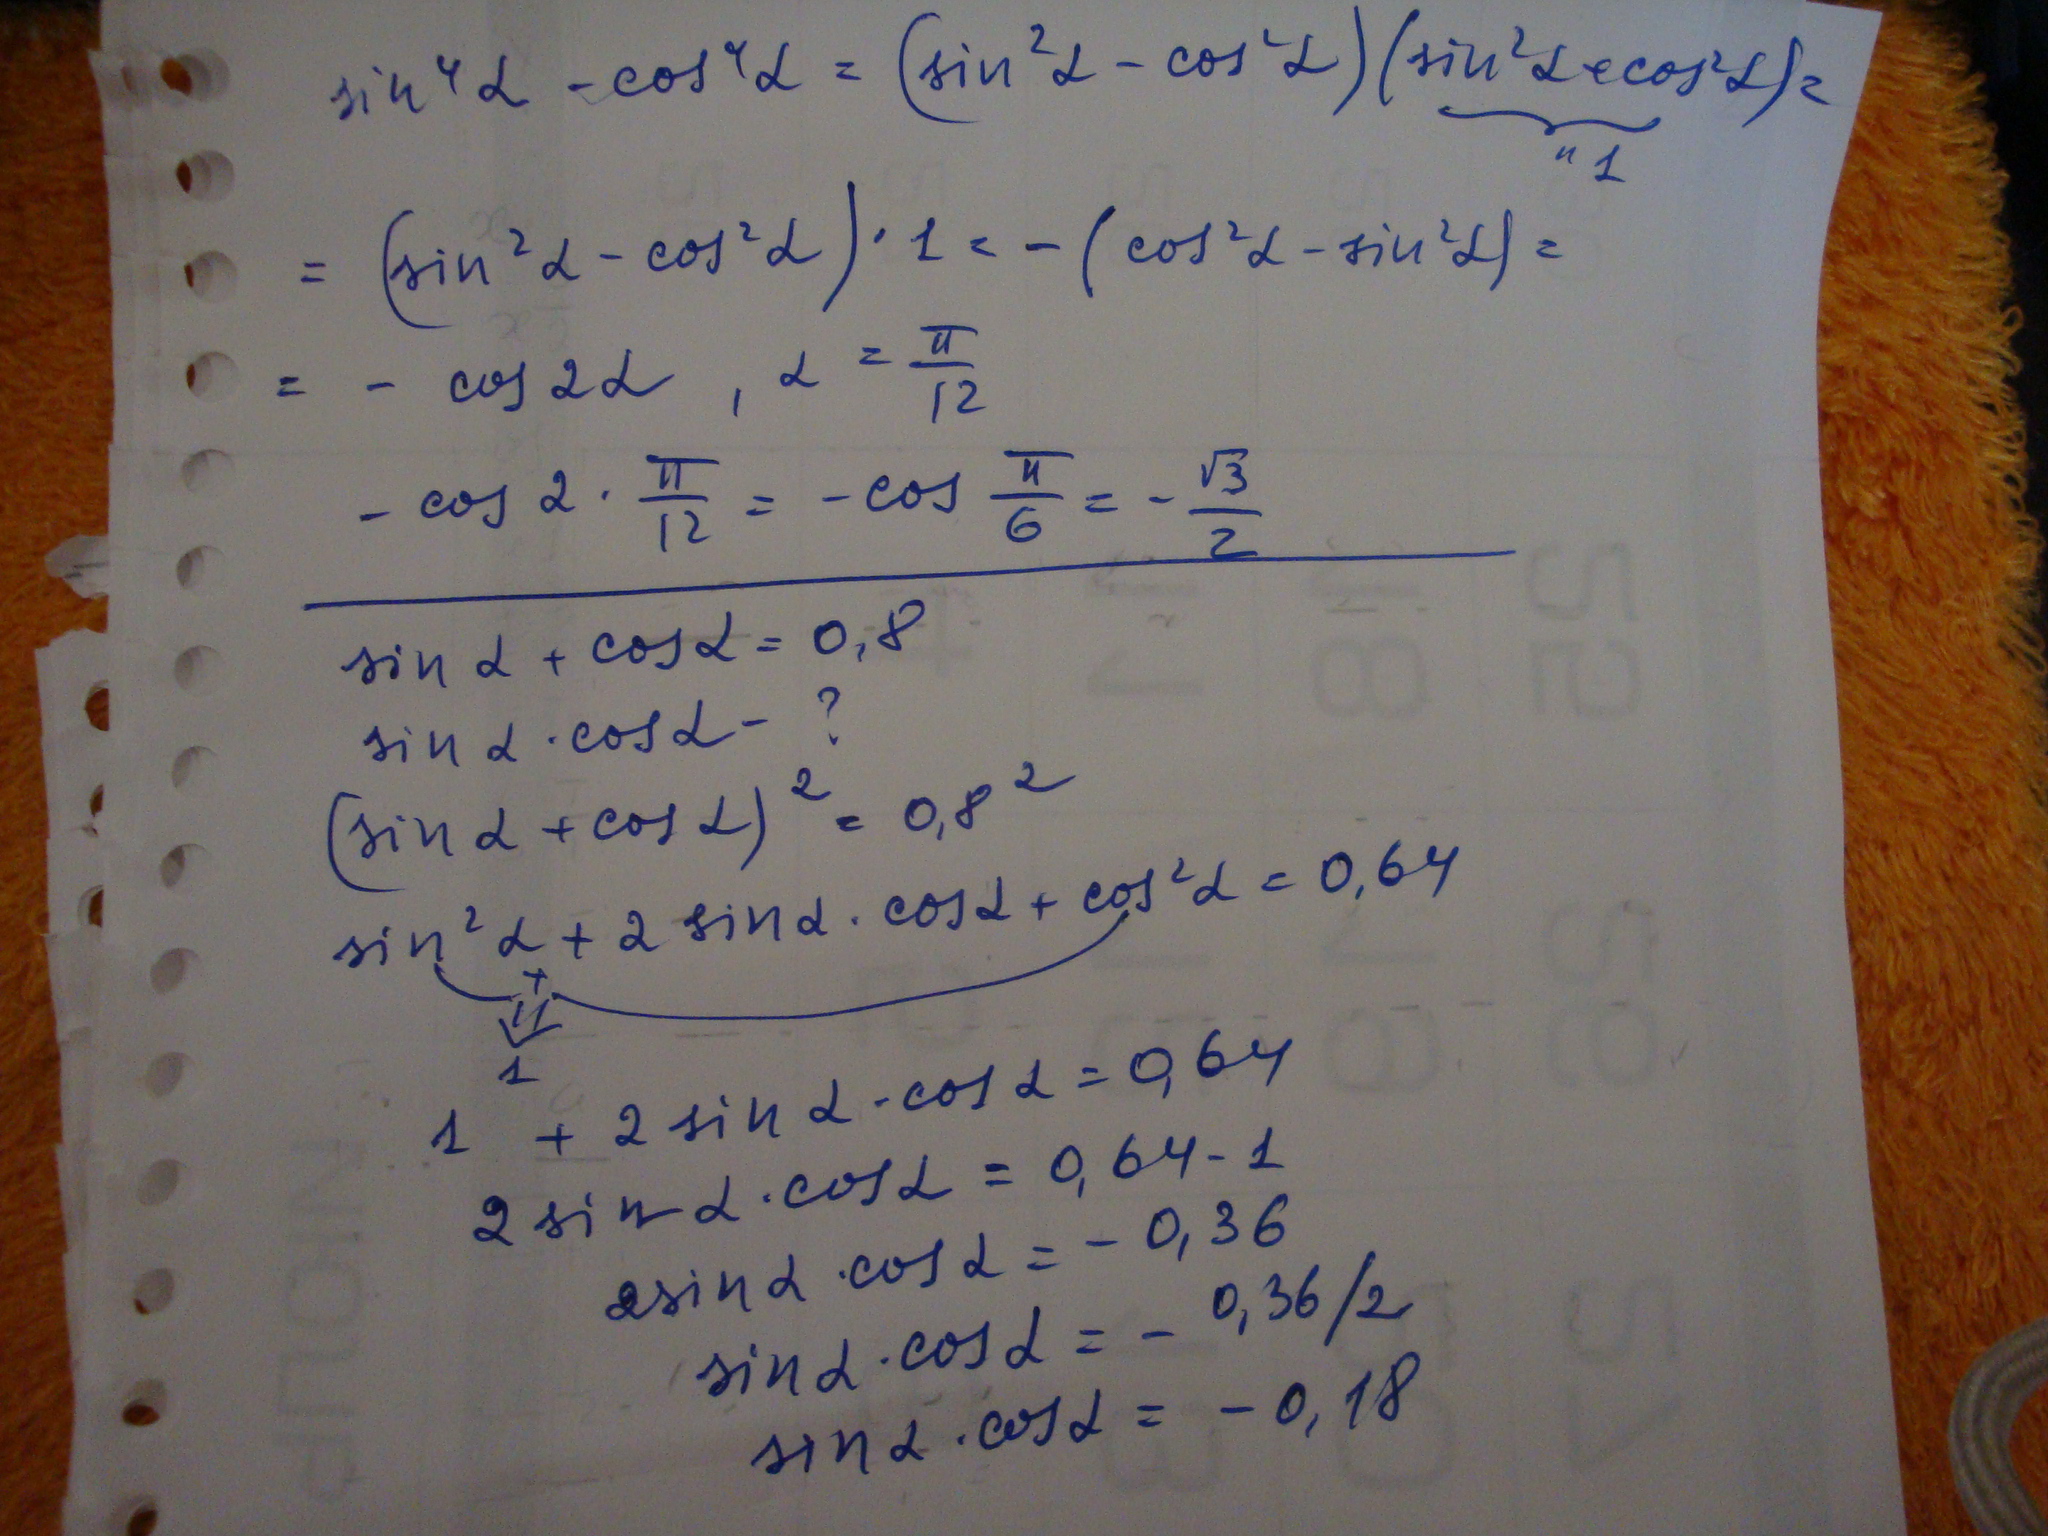 sin⁴α - cos⁴α = (sin²α - cos²α)(sin²α + cos²α) =
" 1
= (sin²α - cos²α) · 1 = - (cos²α - sin²α) =
= - cos 2α , α = π/12
- cos 2 · π/12 = - cos π/6 = - √3/2
sin α + cos α = 0,8
sin α · cos α - ?
(sin α + cos α)² = 0,8²
sin²α + 2 sin α · cos α + cos²α = 0,64
+
1
1 + 2 sin α · cos α = 0,64
2 sin α · cos α = 0,64 - 1
2 sin α · cos α = - 0,36
sin α · cos α = - 0,36/2
sin α · cos α = - 0,18